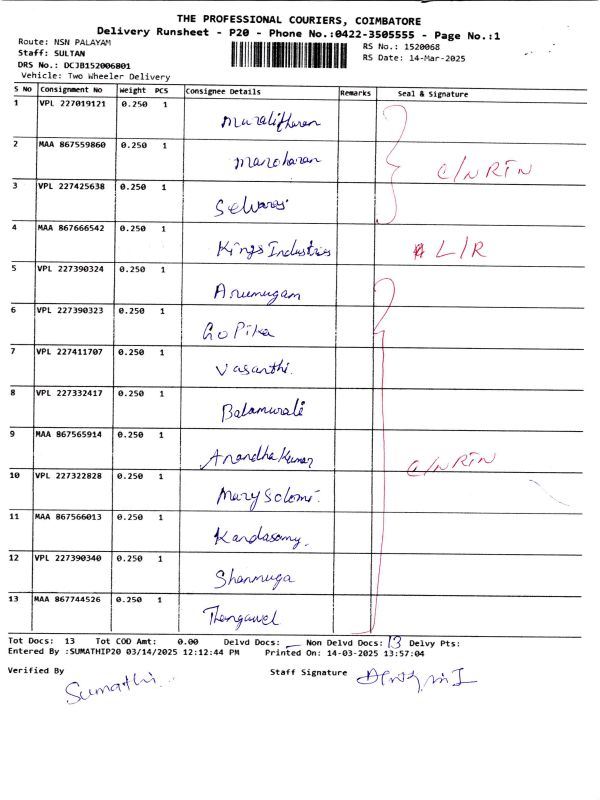 THE PROFESSIONAL COURIERS, COIMBATORE
Delivery Runsheet - P20 - Phone No.:0422-3505555 - Page No.:1
Route: NSN PALAYAM
RS No.: 1520068
Staff: SULTAN
RS Date: 14-Mar-2025
DRS No.: DCJB152006801
Vehicle: Two Wheeler Delivery
S No Consignment No Weight PCS Consignee Details Remarks Seal & Signature
1 VPL 227019121 0.250 1 Muralitharan
2 MAA 867559860 0.250 1 Manoharan C/N RTN
3 VPL 227425638 0.250 1 Selvaraj
4 MAA 867666542 0.250 1 Kings Industries L/R
5 VPL 227390324 0.250 1 Arumugam
6 VPL 227390323 0.250 1 Gopika
7 VPL 227411707 0.250 1 Vasanthi.
8 VPL 227332417 0.250 1 Balamurali
9 MAA 867565914 0.250 1 Anandha Kumar C/N RTN
10 VPL 227322828 0.250 1 Mary Solomi.
11 MAA 867566013 0.250 1 Kandasamy.
12 VPL 227390340 0.250 1 Shanmuga
13 MAA 867744526 0.250 1 Thangavel
Tot Docs: 13 Tot COD Amt: 0.00 Delvd Docs: — Non Delvd Docs: 13 Delvy Pts:
Entered By :SUMATHIP20 03/14/2025 12:12:44 PM Printed On: 14-03-2025 13:57:04
Verified By Staff Signature
Sumathi...